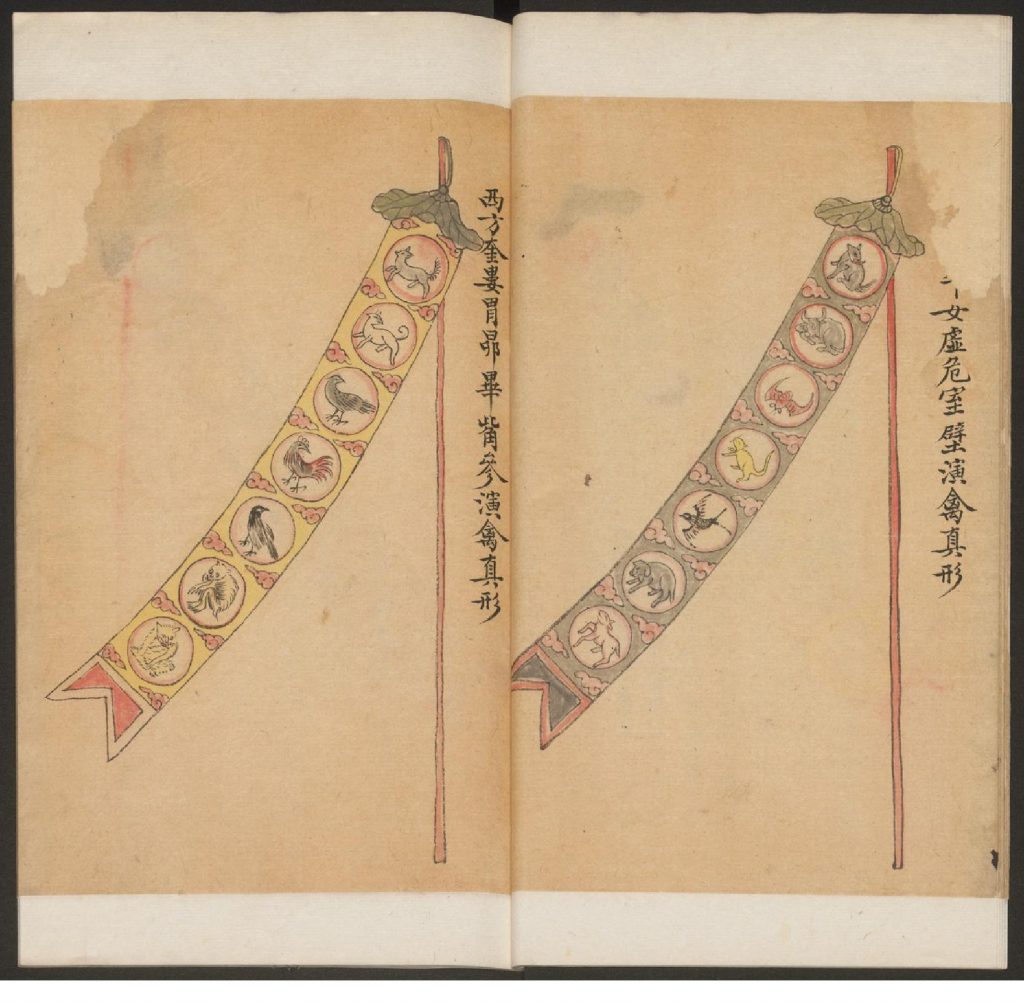 女虛危室壁演禽真形
西方奎婁胃昴畢觜參演禽真形